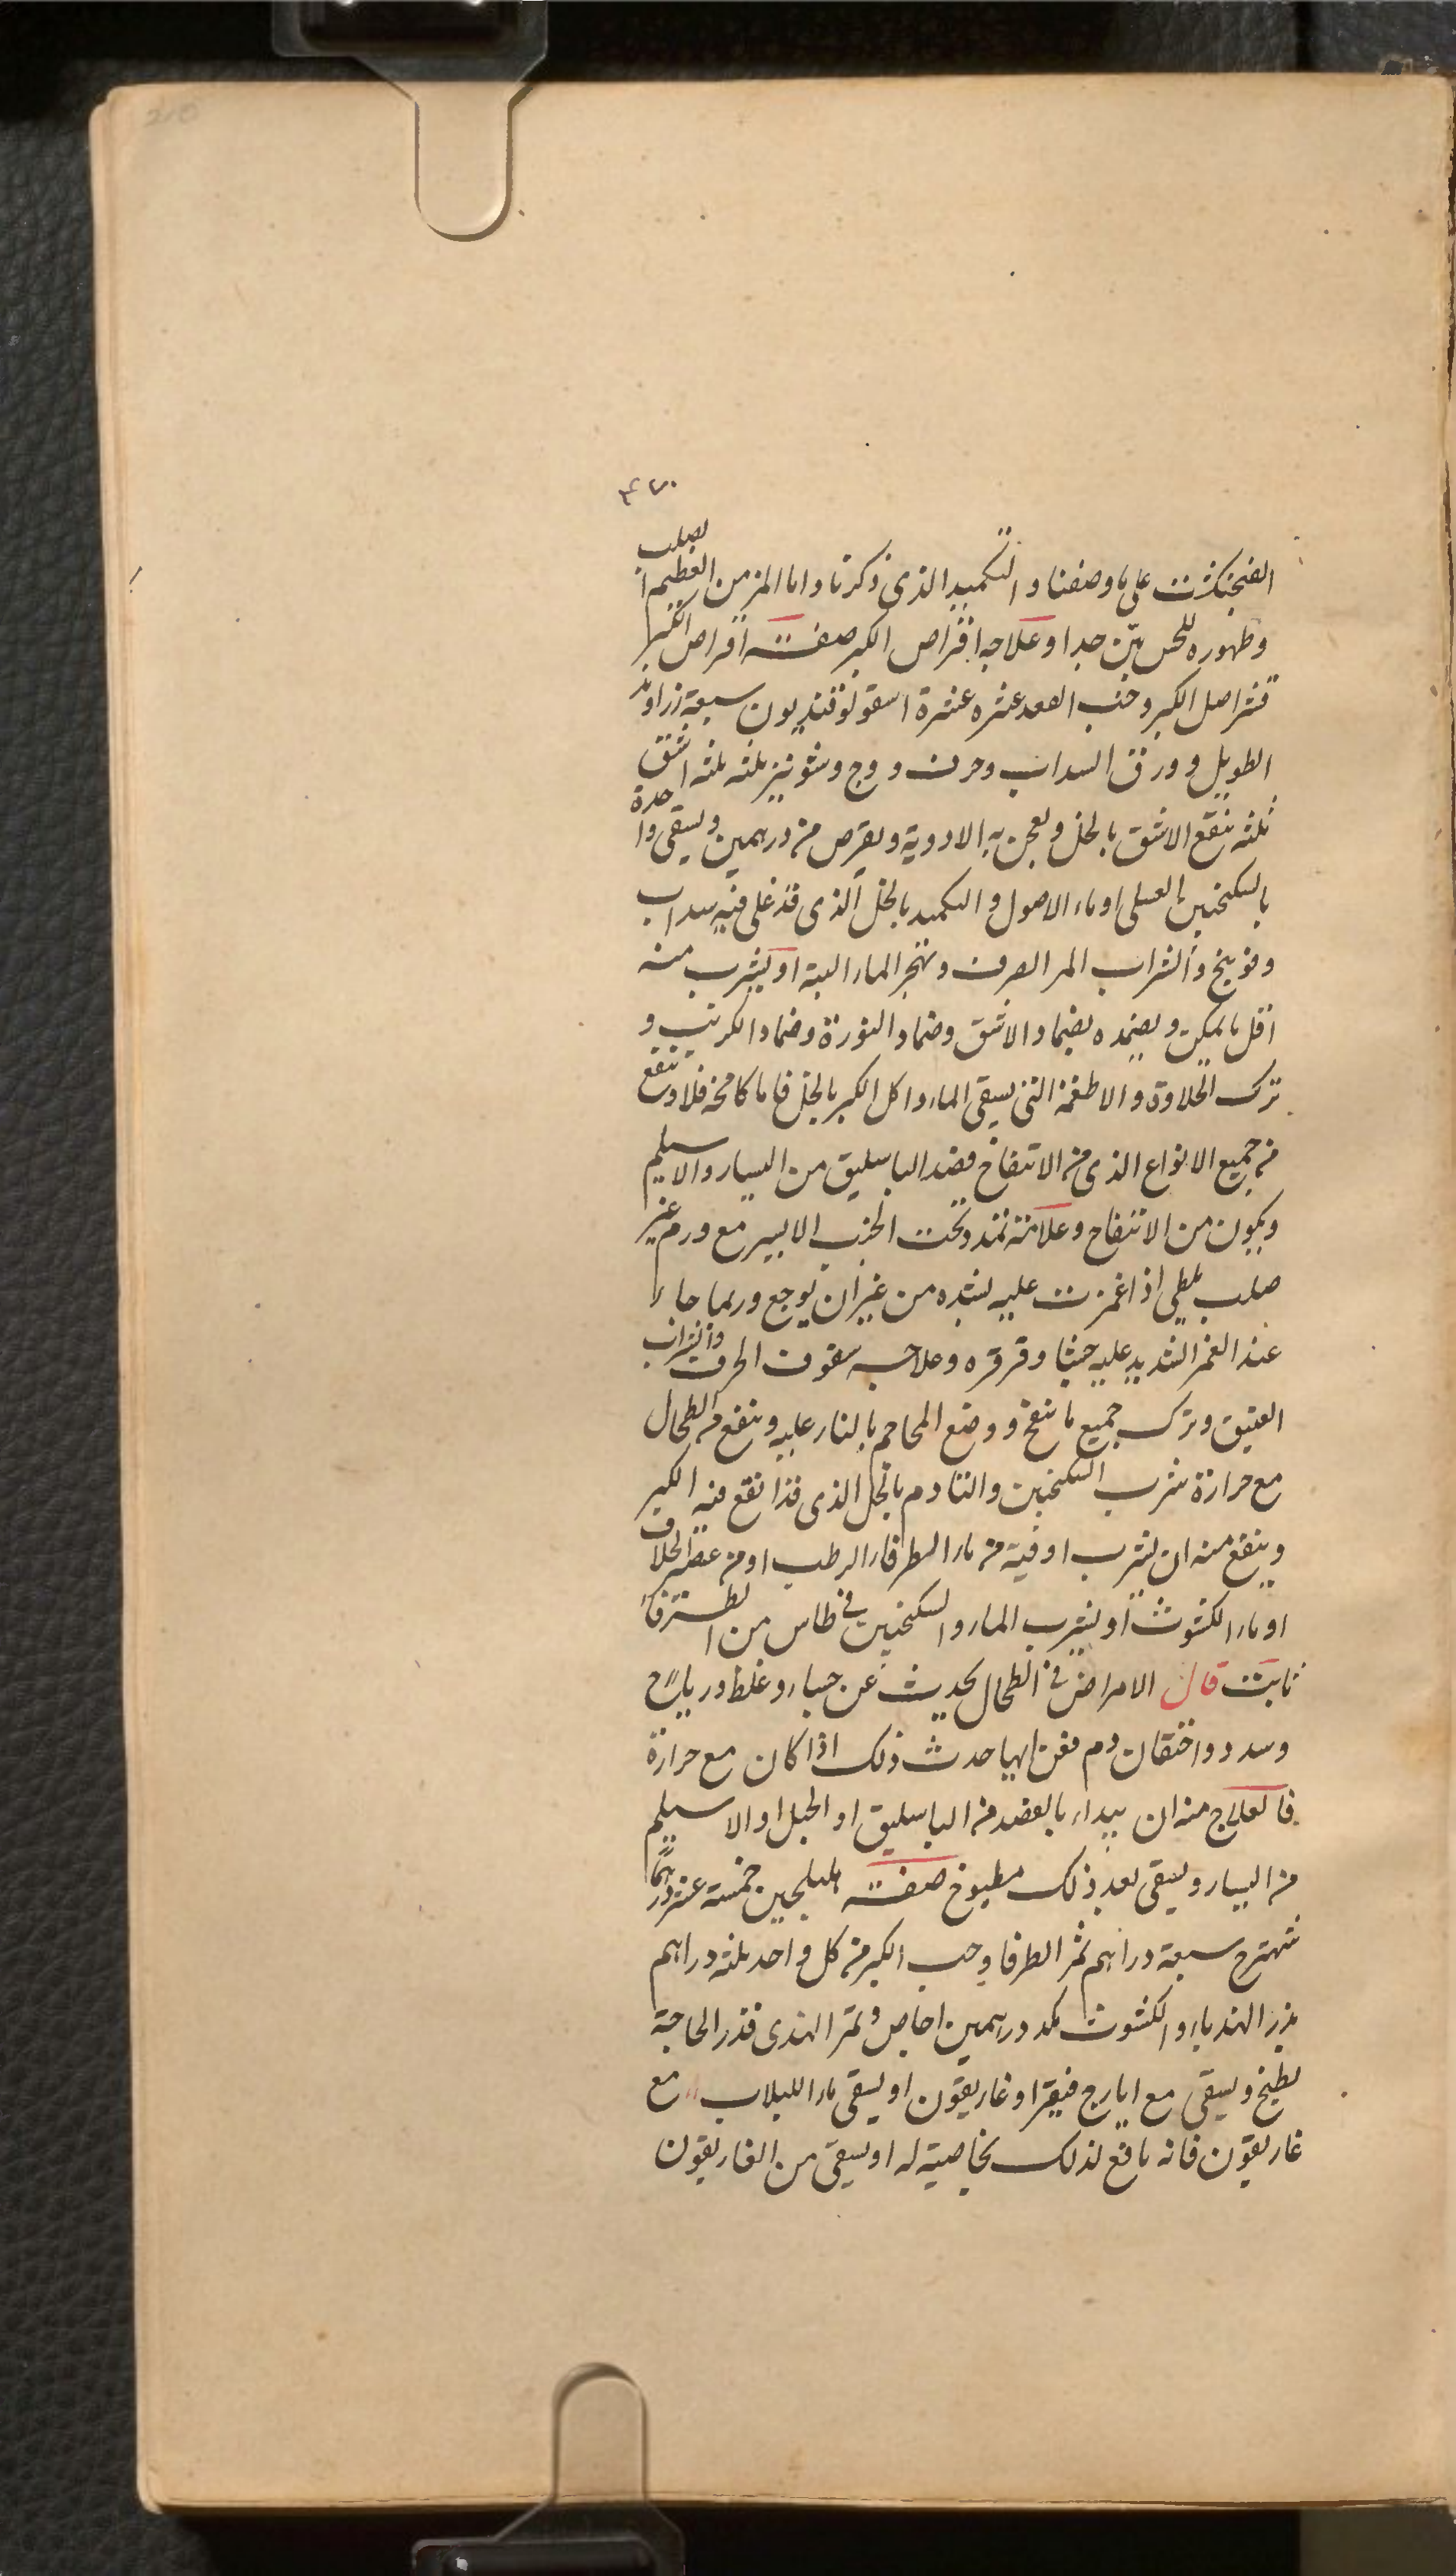 210
٤٢٠
الفنجنكشت على ما وصفنا والتكميد الذى ذكرنا واما المزمن العظيم الصلب
وظهوره للحس بيّن جدا وعلاجه اقراص الكبر صفته اقراص الكبر
قشر اصل الكبر وحب الفقد عشره عشرة اسقولوقنديون سبعة زراوند
الطويل وورق السداب وحرف ووج وشونيز ثلثه ثلثه اشق
ثلثه ينقع الاشق بالخل ويعجن به الادوية ويقرص من درهمين ويسقى واحدة
بالسكنجبين العسلى او ماء الاصول والتكميد بالخل الذى قد غلى فيه سداب
وفوينج والشراب المر الصرف ويهجر الماء البتة او يشرب منه
اقل ما يمكن ويضمده بضماد الاشق وضماد النورة وضماد الكرنب و
ترك الحلاوة والاطعمة التى يسقى الماء واكل الكبر بالخل فاما كامخه فلا وينفع
من جميع الانواع الذى من الانتفاخ فصد الباسليق من اليسار والاسيلم
ويكون من الانتفاخ وعلامته تمدد تحت الجنب الايسر مع ورم غير
صلب يلطى اذا غمزت عليه بشده من غير ان يوجع وربما جاء
عند الغمز الشديد عليه جشا وقرقره وعلاجه سفوف الحرف والشراب
العتيق وترك جميع ما ينفخ ووضع المحاجم بالنار عليه وينفع من الطحال
مع حرارة شرب السكنجبين والتادم بالخل الذى قد انقع فيه الكبر
وينفع منه ان يشرب اوقية من ماء الطرفاء الرطب او من عصير الخلاف
او ماء الكشوث او يشرب الماء والسكنجبين فى طاس من الطرفاء
ثابت قال الامراض فى الطحال يحدث عن جساء وغلظ ورياح
وسدد واختقان دم مغن ايها حدث ذلك اذا كان مع حرارة
فالعلاج منه ان يبداء بالفصد من الباسليق او الحبل او الاسيلم
من اليسار ويسقى بعد ذلك مطبوخ صفته هليلجين خمسة عشر درهمًا
شهترج سبعة دراهم ثمر الطرفا وحب الكبر من كل واحد ثلثه دراهم
بزر الهندباء والكشوث كد درهمين اجاص وتمر الهندى قدر الحاجة
يطبخ ويسقى مع ايارج فيقرا وغاريقون او يسقى ماء اللبلاب مع
غاريقون فانه نافع لذلك بخاصية له او يسقى من الغاريقون